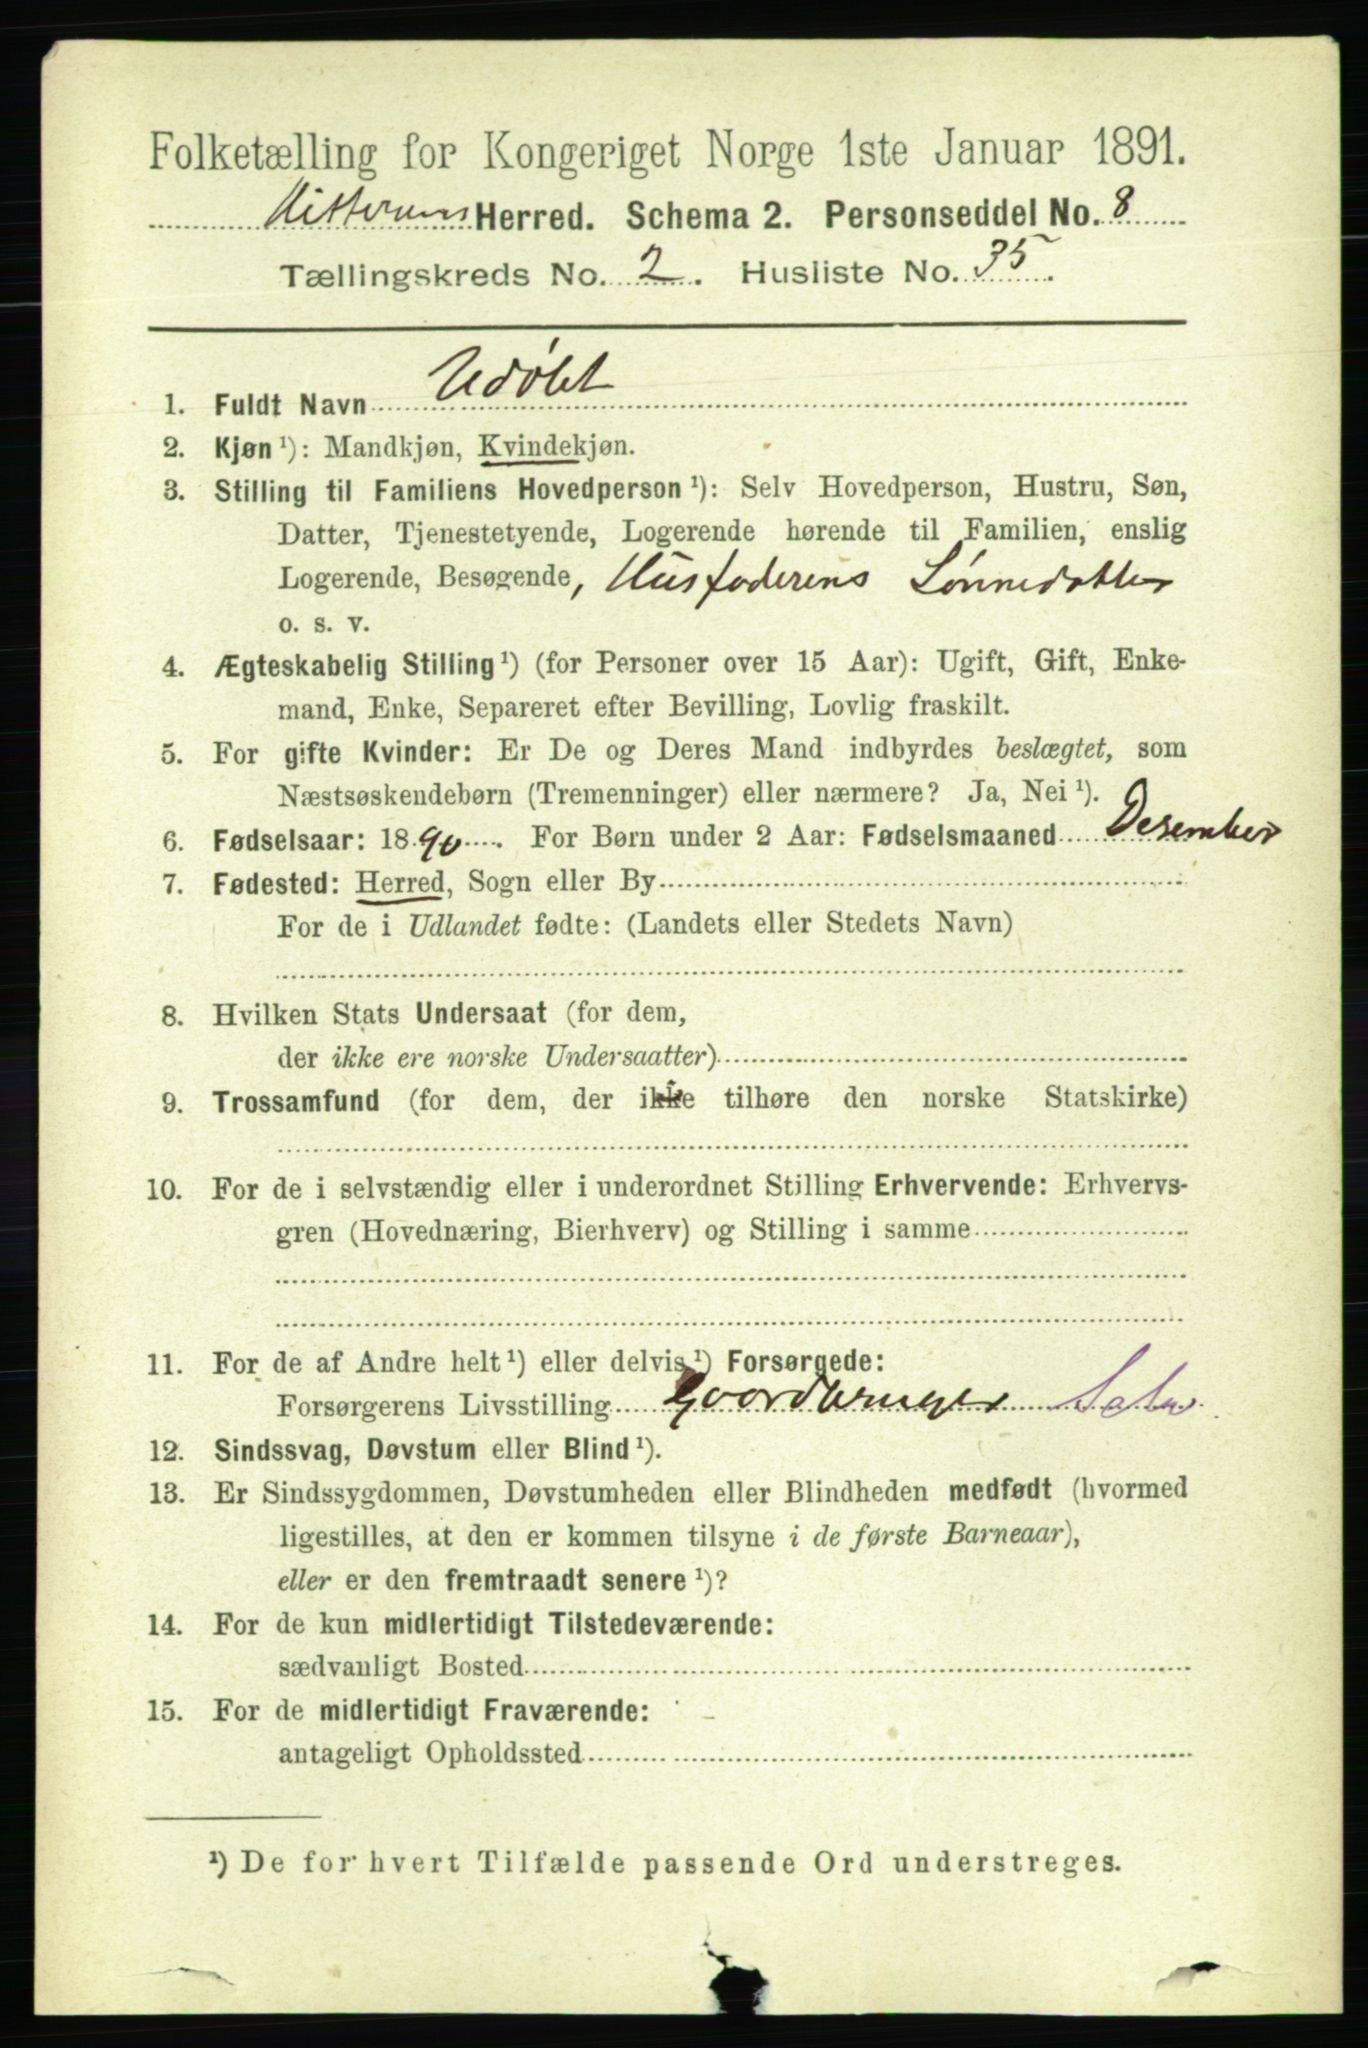 Folketælling for Kongeriget Norge 1ste Januar 1891.
Hitterøens Herred. Schema 2. Personseddel No. 8
Tællingskreds No. 2. Husliste No. 35.
1. Fuldt Navn Udøbt
2. Kjøn ¹): Mandkjøn, Kvindekjøn.
3. Stilling til Familiens Hovedperson ¹): Selv Hovedperson, Hustru, Søn,
Datter, Tjenestetyende, Logerende hørende til Familien, enslig
Logerende, Besøgende, Husfaderens Sønnedatter
o. s. v.
4. Ægteskabelig Stilling ¹) (for Personer over 15 Aar): Ugift, Gift, Enke-
mand, Enke, Separeret efter Bevilling, Lovlig fraskilt.
5. For gifte Kvinder: Er De og Deres Mand indbyrdes beslægtet, som
Næstsøskendebørn (Tremenninger) eller nærmere? Ja, Nei ¹).
6. Fødselsaar: 1890. For Børn under 2 Aar: Fødselsmaaned Desember
7. Fødested: Herred, Sogn eller By
For de i Udlandet fødte: (Landets eller Stedets Navn)
8. Hvilken Stats Undersaat (for dem,
der ikke ere norske Undersaatter)
9. Trossamfund (for dem, der ikke tilhøre den norske Statskirke)
10. For de i selvstændig eller i underordnet Stilling Erhvervende: Erhvervs-
gren (Hovednæring, Bierhverv) og Stilling i samme
11. For de af Andre helt ¹) eller delvis ¹) Forsørgede:
Forsørgerens Livsstilling Gaardbruger
12. Sindssvag, Døvstum eller Blind ¹).
13. Er Sindssygdommen, Døvstumheden eller Blindheden medfødt (hvormed
ligestilles, at den er kommen tilsyne i de første Barneaar),
eller er den fremtraadt senere ¹)?
14. For de kun midlertidigt Tilstedeværende:
sædvanligt Bosted
15. For de midlertidigt Fraværende:
antageligt Opholdssted
¹) De for hvert Tilfælde passende Ord understreges.